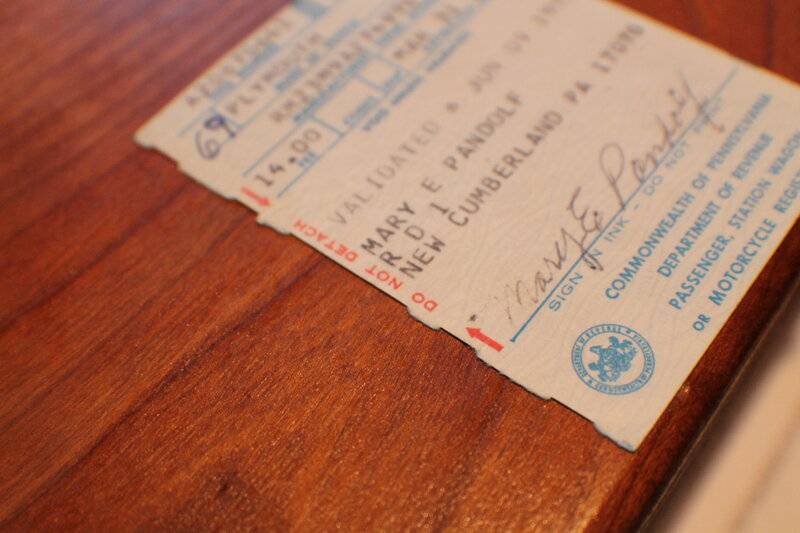 69 PLYMOUTH
MAR 31
14.00
VALIDATED * JUN 09
MARY E PANDOLF
R D 1
NEW CUMBERLAND PA 17070
DO NOT DETACH
Mary E Pandolf
SIGN IN INK - DO NOT PRINT
COMMONWEALTH OF PENNSYLVANIA
DEPARTMENT OF REVENUE
PASSENGER, STATION WAGON
OR MOTORCYCLE REGI